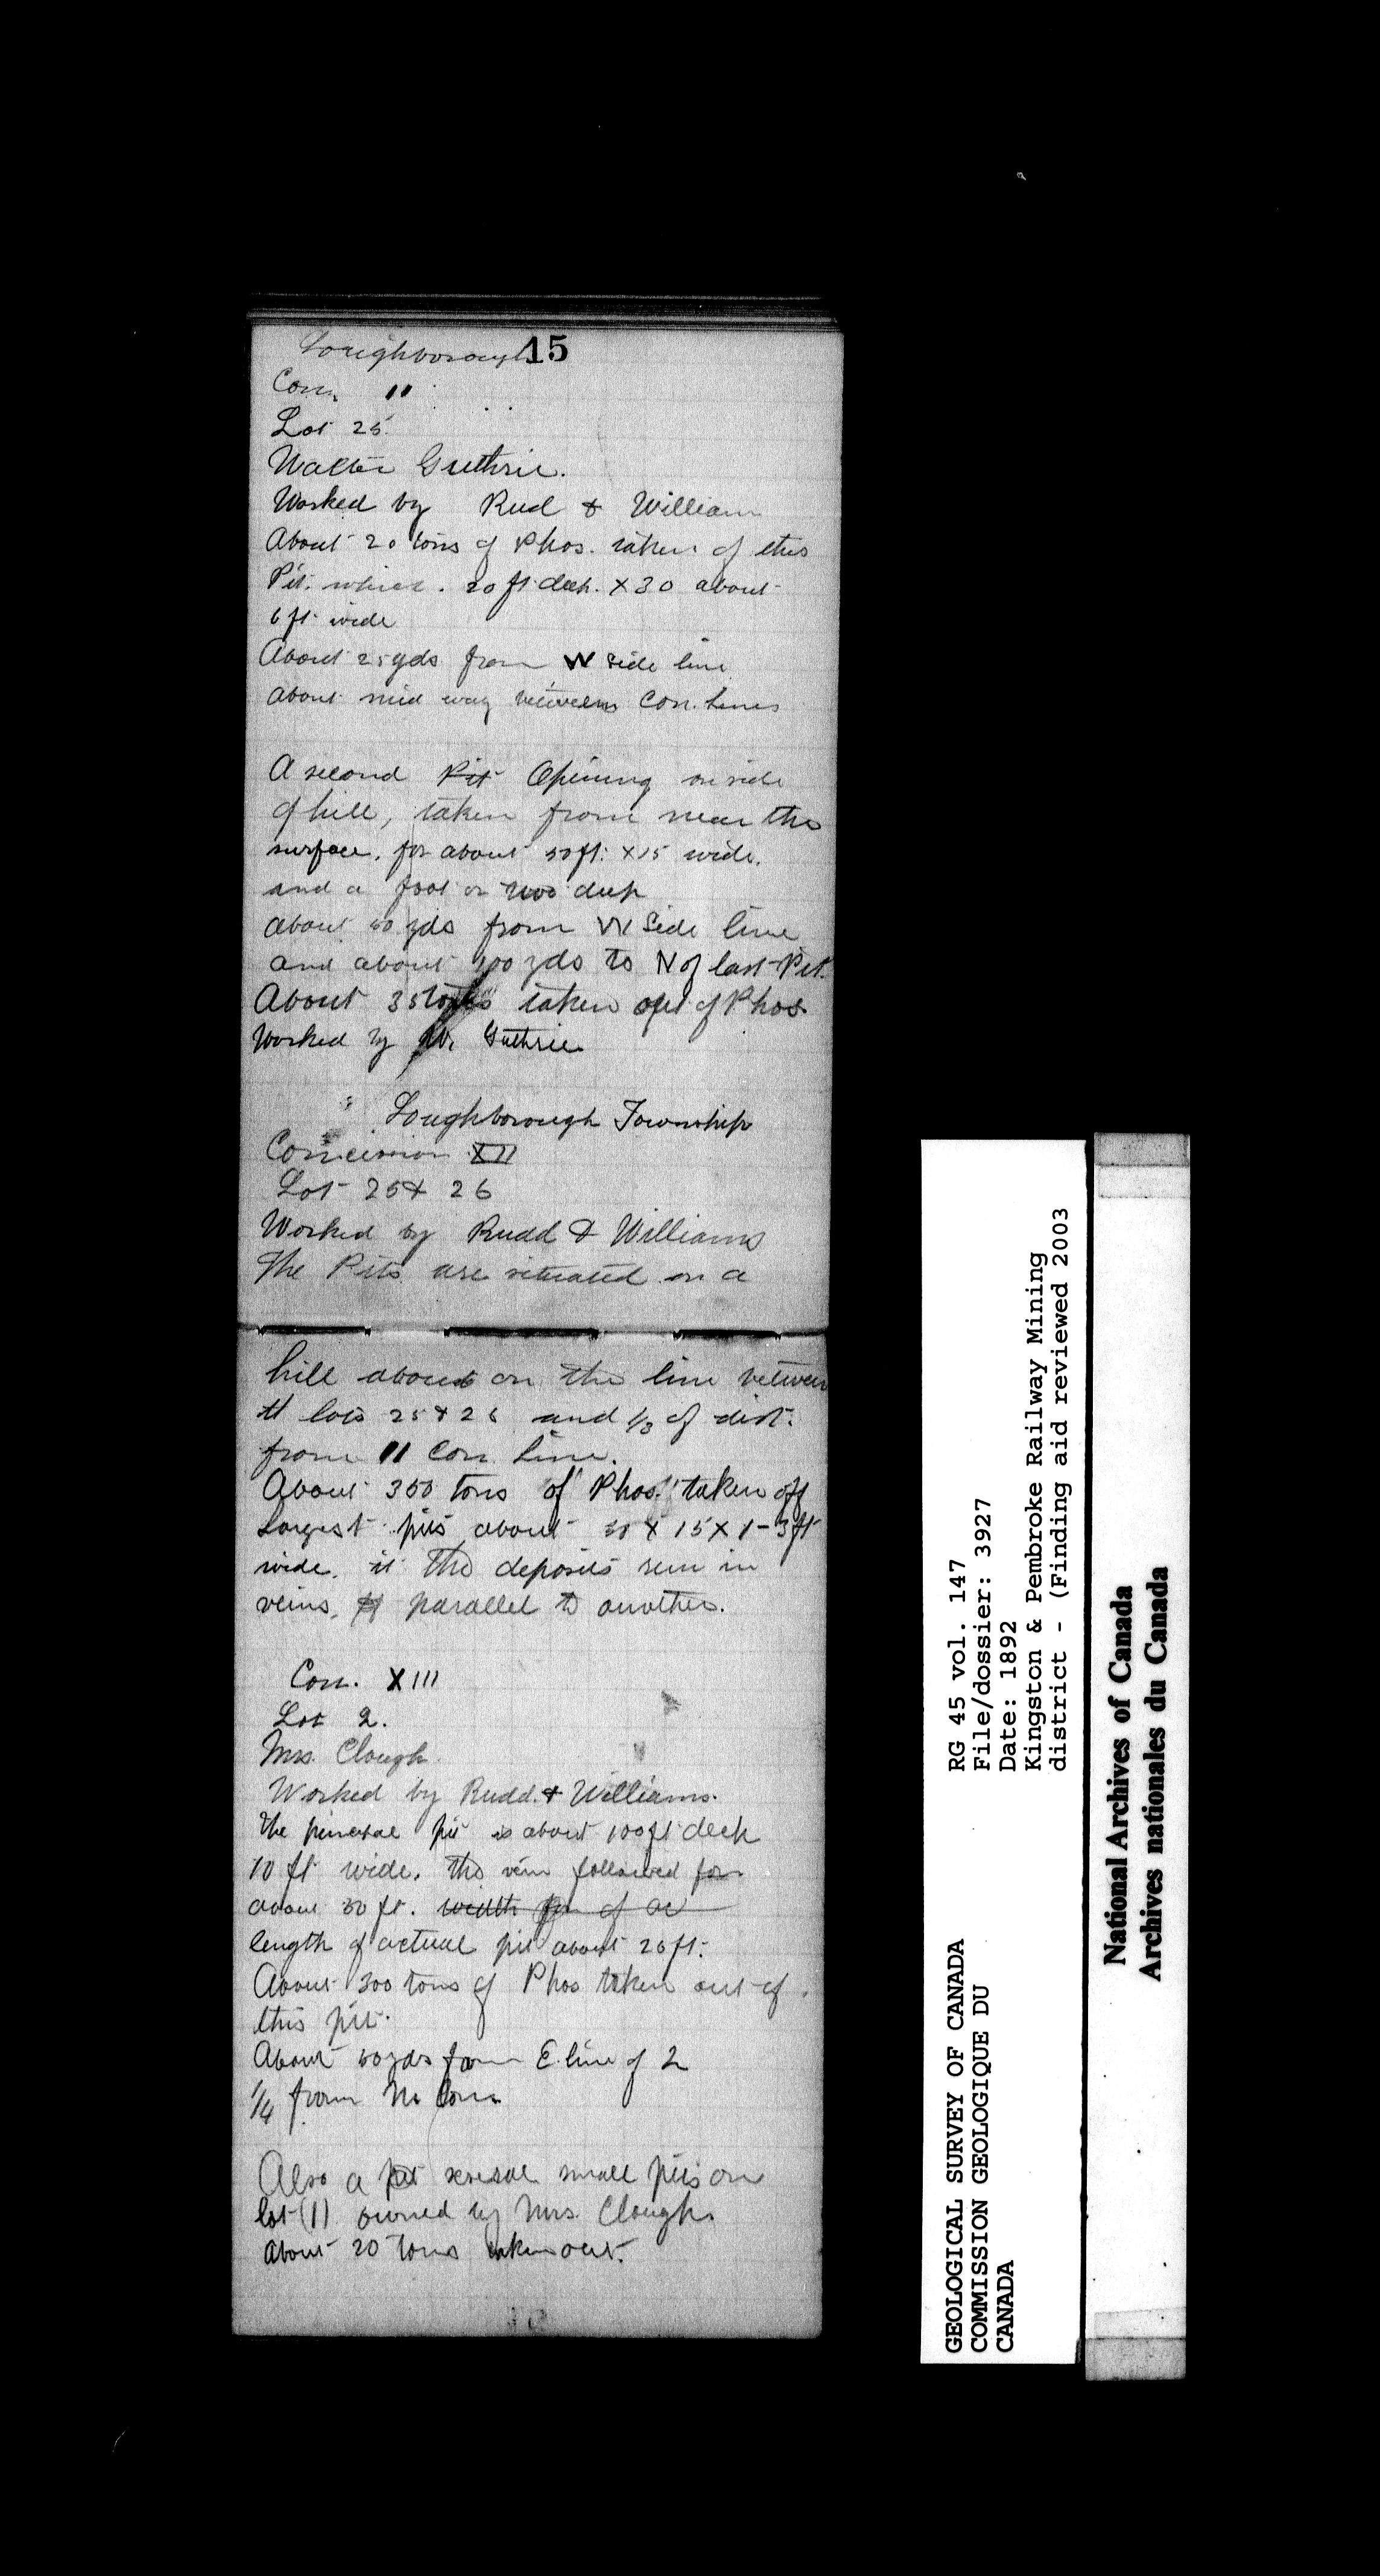 Loughborough 15
Con. 11
Lot 25
Walter Guthrie.
Worked by Rud & William
About 20 tons of Phos. taken of this
Pit. which . 20 ft deep. X 30 about
6 ft wide
About 25 yds from W side line
about mid way betweens Con. Lines
A second Pit Opening on side
of hill, taken from near the
surface. for about 50 ft. X 15 wide.
and a foot or two deep
about 50 yds from W Side line
and about 100 yds to N of last Pit.
About 35 tons taken out of Phos.
Worked by W. Guthrie
Loughborough Township
Concession XII
Lot 25 & 26
Worked by Rudd & Williams
The Pits are situated on a
hill about on the line between
lots 25 & 26 and 1/3 of dist.
from 11 Con Line.
About 350 tons of Phos. taken off
Largest pits about 30 X 15 X 1-3 ft
wide. it The deposits run in
veins, parallel to another.
Con. XIII
Lot 2.
Mrs. Clough
Worked by Rudd. & Williams.
The principal pit is about 100 ft deep
10 ft wide. The vein followed for
about 30 ft. width of
length of actual pit about 20 ft.
About 300 tons of Phos taken out of
this pit.
About 50 yds from E. line of 2
1/4 from N. Con.
Also a pit several small pits on
lot (1) owned by Mrs. Clough.
About 20 tons taken out.
GEOLOGICAL SURVEY OF CANADA
COMMISSION GEOLOGIQUE DU
CANADA
RG 45 vol. 147
File/dossier: 3927
Date: 1892
Kingston & Pembroke Railway Mining
district - (Finding aid reviewed 2003
National Archives of Canada
Archives nationales du Canada